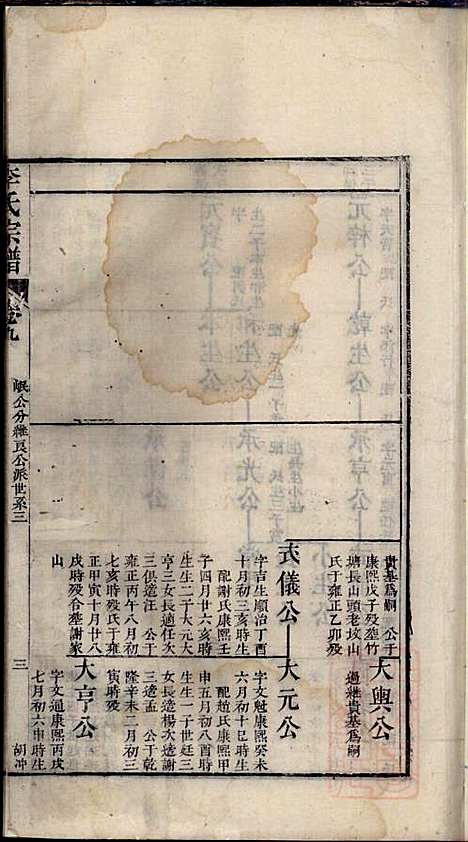 貴基爲嗣　公于
康熙戊子殁塟竹
塘長山頭老坟山
氏于雍正乙卯殁
大輿公
過繼貴基爲嗣
表儀公
字吉生順治丁酉
十月初三亥時生
配謝氏康熙壬
子四月廿六亥時
生生二子大元大
亨三女長適任次
三俱適汪　公于
雍正丙午八月初
七亥時殁氏于雍
正甲寅十月廿八
戌時殁合塟謝家
山
大元公
字文魁康熙癸未
六月初十巳時生
配趙氏康熙甲
申五月初八酉時
生生一子世廷三
女長適楊次適謝
三適孟　公于乾
隆辛未二月初三
寅時殁
大亨公
字文通康熙丙戌
七月初六申時生
李氏宗譜
卷九
岷公分維良公派世系三
三
胡冲